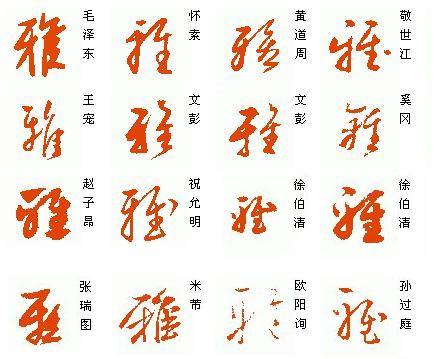 雅 毛泽东
雅 怀素
雅 黄道周
雅 敬世江
雅 王宠
雅 文彭
雅 文彭
雅 奚冈
雅 赵子昂
雅 祝允明
雅 徐伯清
雅 徐伯清
雅 张瑞图
雅 米芾
雅 欧阳询
雅 孙过庭